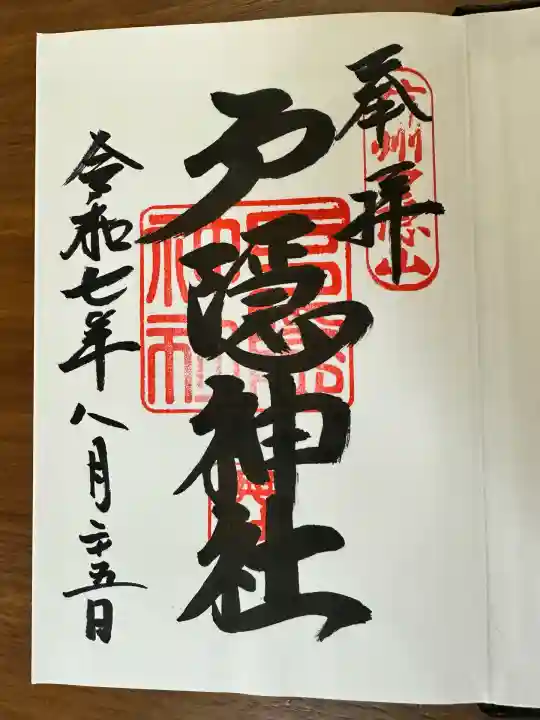 奉拝
信州戸隠山
戸隠神社
令和七年八月二十五日